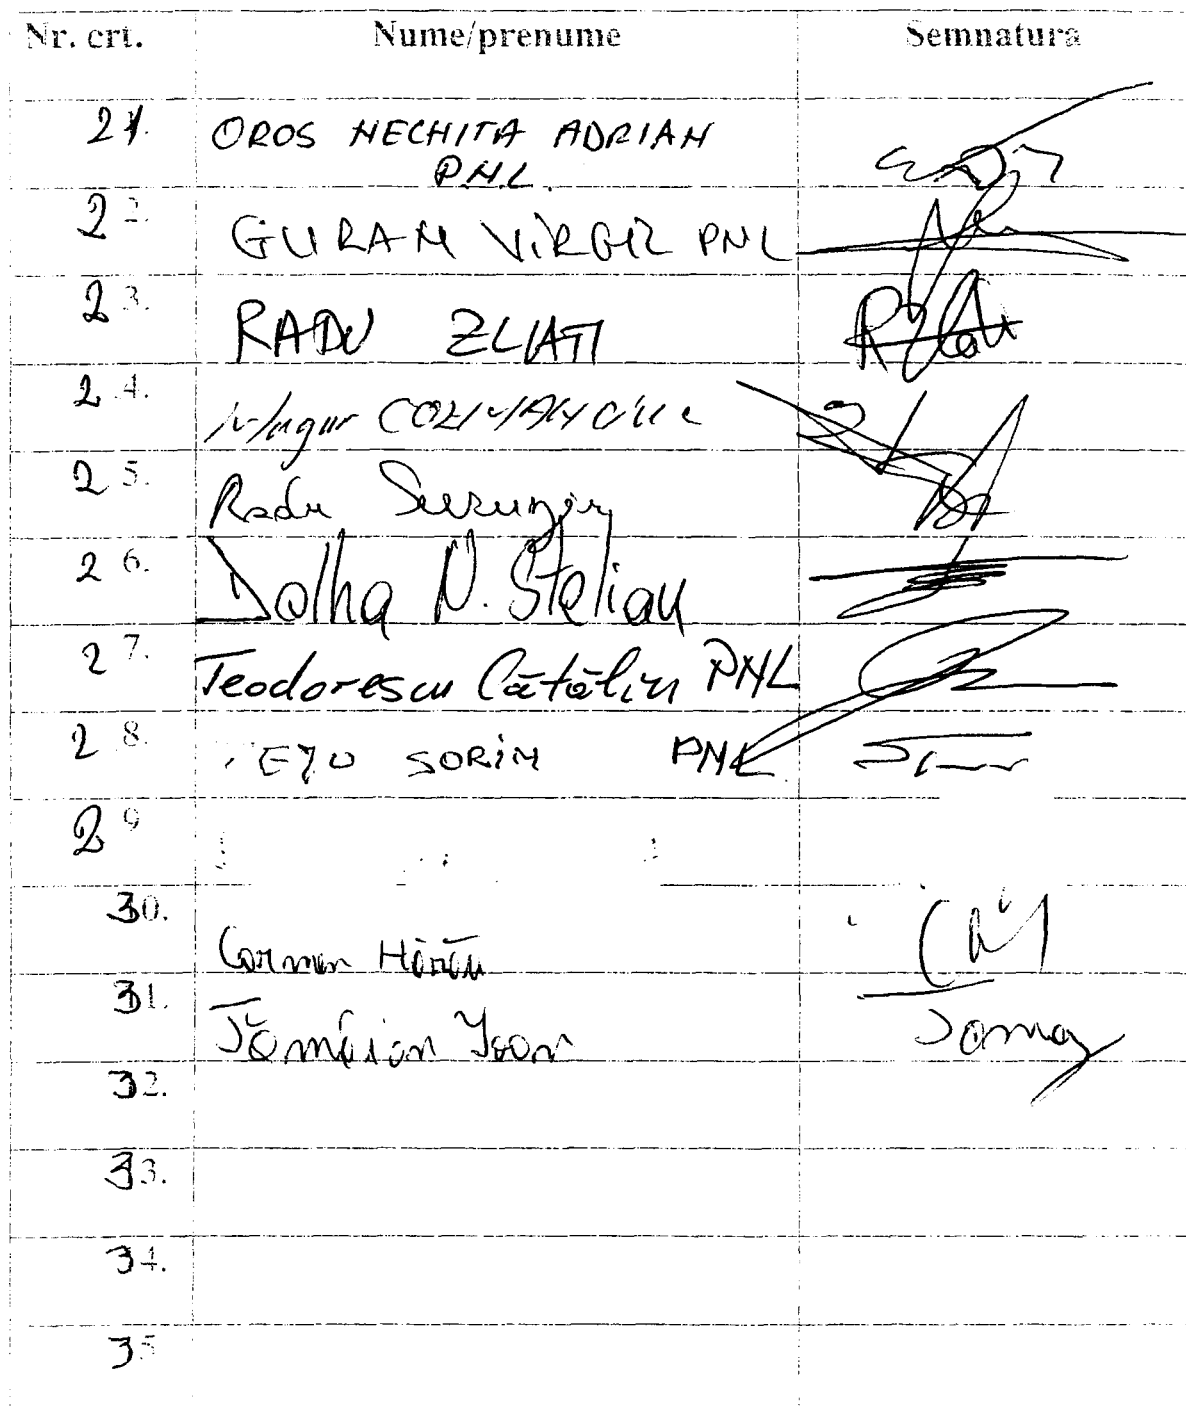 Nr. crt. Nume/prenume Semnatura
21. OROS NECHITA ADRIAN
PNL
22. GURAN VIRGIL PNL
23. RADU ZLATI
24.
25. Radu Surugiu
26. Dolha N. Stelian
27. Teodorescu Cătălin PNL
28. SORIN PNL
29
30. Carmen Hărău
31. Tămăian Ioan
32.
33.
34.
35